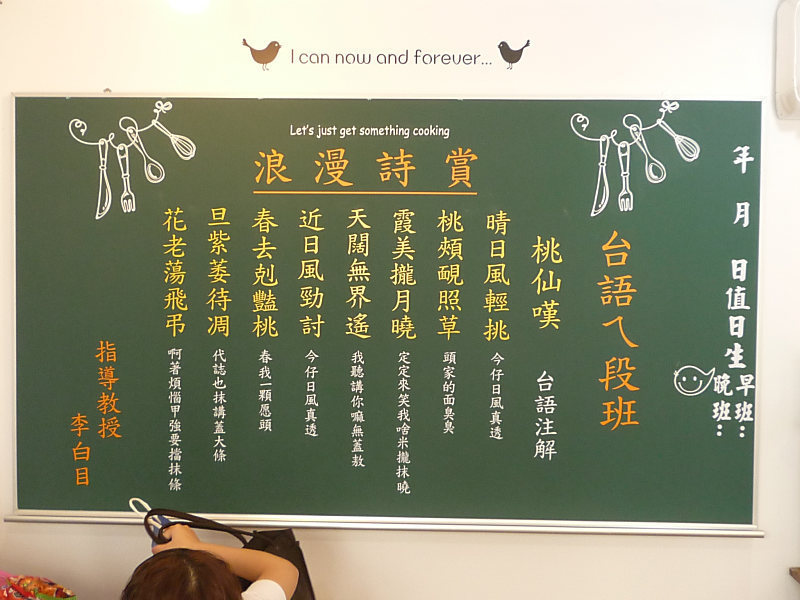 I can now and forever...
Let's just get something cooking
浪漫詩賞
年 月 日值日生
早班：
晚班：
台語ㄟ段班
桃仙嘆 台語注解
晴日風輕挑 今仔日風真透
桃頰覕照草 頭家的面臭臭
霞美攏月曉 定定來笑我啥米攏抹曉
天闊無界遙 我聽講你嘛無蓋敖
近日風勁討 今仔日風真透
春去剋豔桃 春我一顆愿頭
旦紫萎待凋 代誌也抹講蓋大條
花老蕩飛弔 啊著煩惱甲強要擋抹條
指導教授
李白目